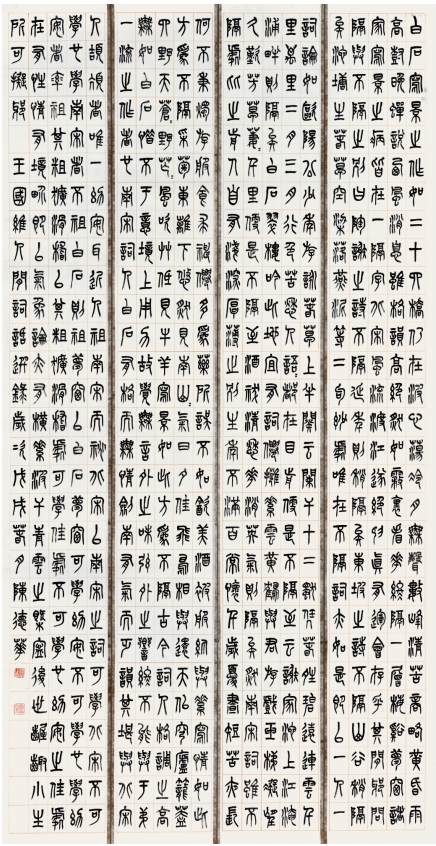 白石寫景之作如二十四橋仍在波心蕩冷月無聲數峰清苦商略黃昏雨
高樹晚蟬說西風消息雖格韻高絕然如霧裏看花終隔一層梅溪夢窗諸
家寫景之病皆在一隔字北宋風流渡江遂絕抑真有運會存乎其間耶問
隔與不隔之別曰陶謝之詩不隔延年則稍隔矣東坡不隔山谷則稍隔
矣池塘生春草空梁落燕泥等二句妙處唯在不隔詞亦如是即以一人一
詞論如歐陽公少年游詠春草上半闋云闌干十二獨憑春晴碧遠連雲千
里萬里二月三月行色苦愁人語語都在目前便是不隔至云謝家池上江淹
浦畔則隔矣白石翠樓吟此地宜有詞仙擁素雲黃鶴與君遊戲玉梯凝望
久歎芳草萋萋千里便是不隔至酒祓清愁花消英氣則隔矣然南宋詞雖不
隔處比之前人自有淺深厚薄之別生年不滿百常懷千歲憂晝短苦夜長
何不秉燭遊服食求神仙多為藥所誤不如飲美酒被服紈與素寫情如此
方為不隔采菊東籬下悠然見南山山氣日夕佳飛鳥相與還天似穹廬籠蓋
四野天蒼蒼野茫茫風吹草低見牛羊寫景如此方為不隔古今詞人格調之高
無如白石惜不于意境上用力故覺無言外之味弦外之響終不能與于第
一流之作者也南宋詞人白石有格而無情劍南有氣而乏韻其堪與北宋
人頡頏者唯一幼安耳近人祖南宋而祧北宋以南宋之詞可學北宋不可
學也學南宋者不祖白石則祖夢窗以白石夢窗可學幼安不可學也學幼
安者率祖其粗獷滑稽以其粗獷滑稽處可學佳處不可學也幼安之佳處
在性情有境界即以氣象論亦有橫素波干青雲之概寧後世齷齪小生
所可擬耶王國維人間詞話選錄歲次戊戌春月陳德華